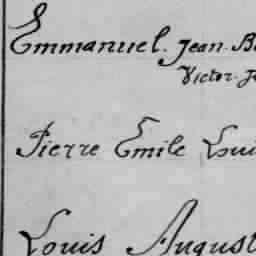 Emmanuel. Jean. B
Victor. J
Pierre Emile Loui
Louis August